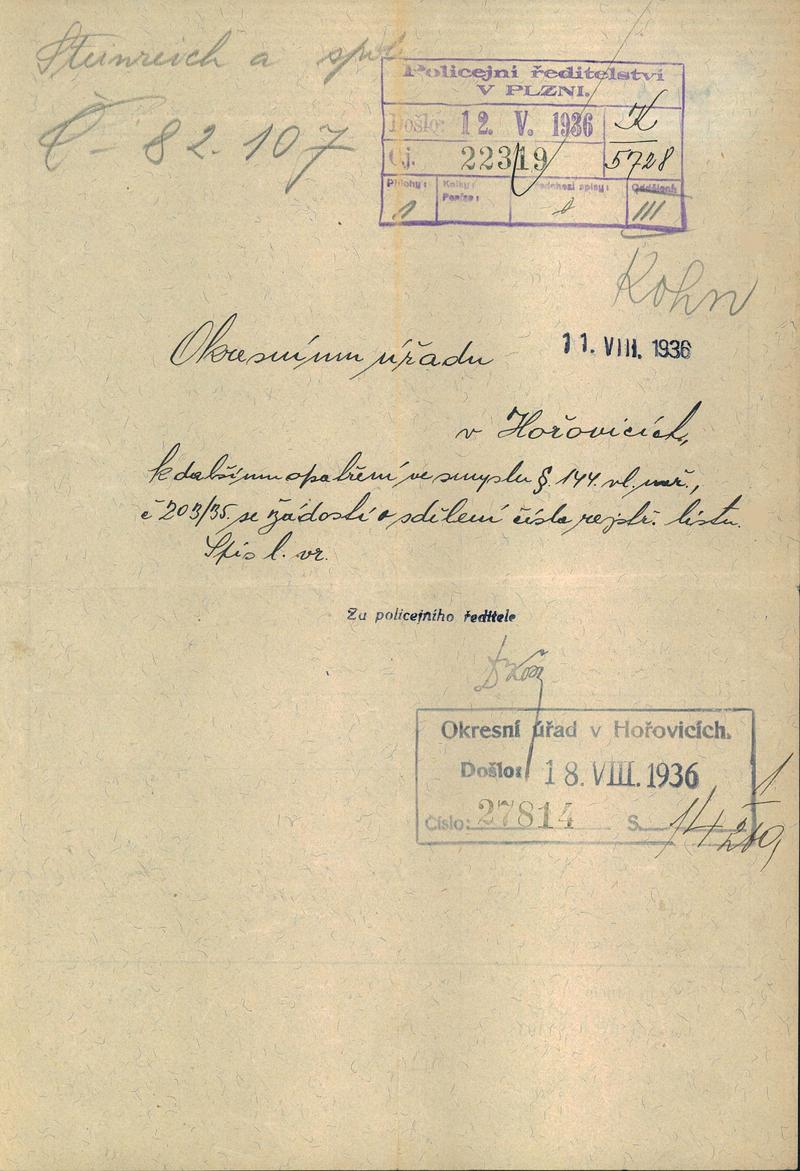 Steinreich a spol.
Č - 82.107
Policejní ředitelství
V PLZNI.
Došlo: 12. V. 1936 K
Čj. 22319 5728
Přílohy: Kolky: Předchozí spisy: Oddělení:
Peníze:
1 III
Kohn
Okresnímu úřadu 11. VIII. 1936
v Hořovicích,
k dalšímu opatření ve smyslu §. 144. vl. nař.,
č 203/35. se žádostí o sdělení čísla rejstř. listu.
Spis l. vr.
Za policejního ředitele
Okresní úřad v Hořovicích.
Došlo: 18. VIII. 1936
Číslo: 27814 S. 14